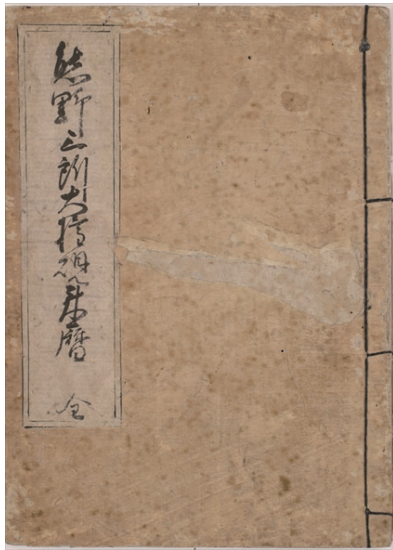 熊野三所大権現来暦
全